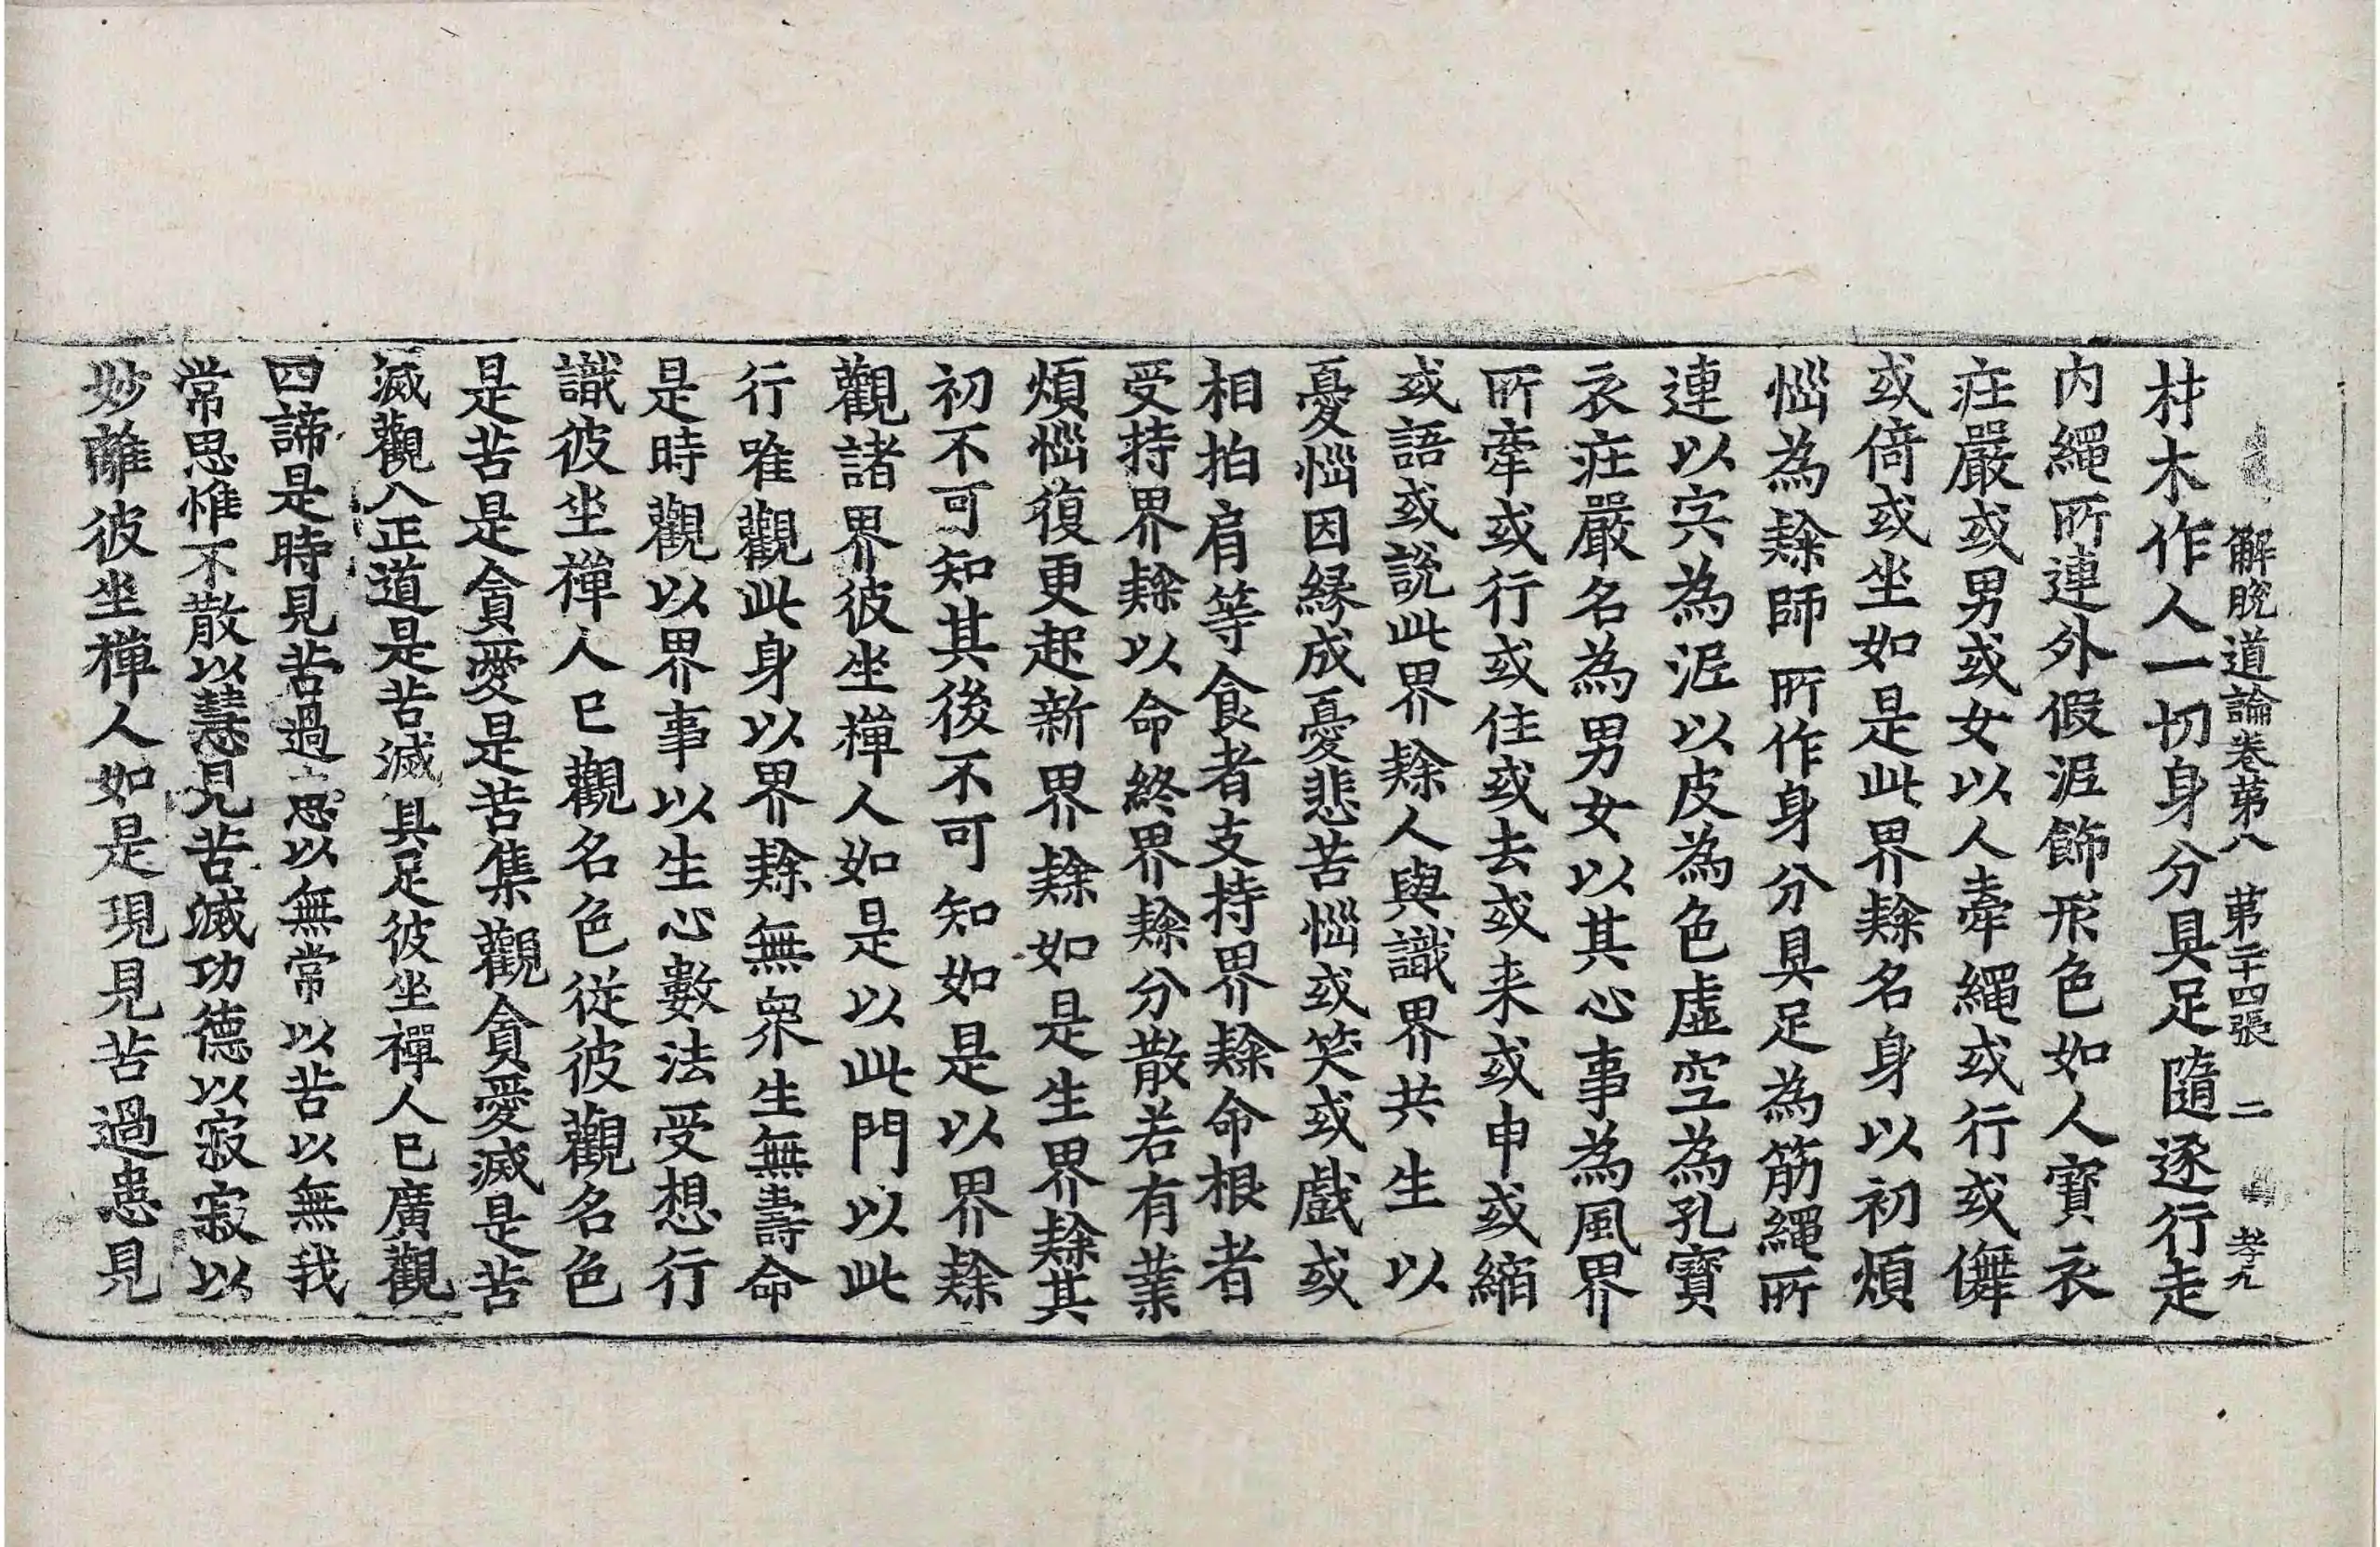 解脫道論卷第八 第二十四張 二 孝九
材木作人一切身分具足隨逐行走
內繩所連外假泥飾形色如人寶衣
莊嚴或男或女以人牽繩或行或儛
或倚或坐如是此界隸名身以初煩
惱為隸師所作身分具足為筋繩所
連以宍為泥以皮為色虛空為孔寶
衣莊嚴名為男女以其心事為風界
所牽或行或住或去或来或申或縮
或語或說此界隸人與識界共生以
憂惱因緣成憂悲苦惱或笑或戲或
相拍肩等食者支持界隸命根者
受持界隸以命終界隸分散若有業
煩惱復更起新界隸如是生界隸其
初不可知其後不可知如是以界隸
觀諸界彼坐禪人如是以此門以此
行唯觀此身以界隸無眾生無壽命
是時觀以界事以生心數法受想行
識彼坐禪人已觀名色從彼觀名色
是苦是貪愛是苦集觀貪愛滅是苦
滅觀八正道是苦滅具足彼坐禪人已廣觀
四諦是時見苦過患以無常以苦以無我
常思惟不散以慧見苦滅功德以寂寂以
妙離彼坐禪人如是現見苦過患見